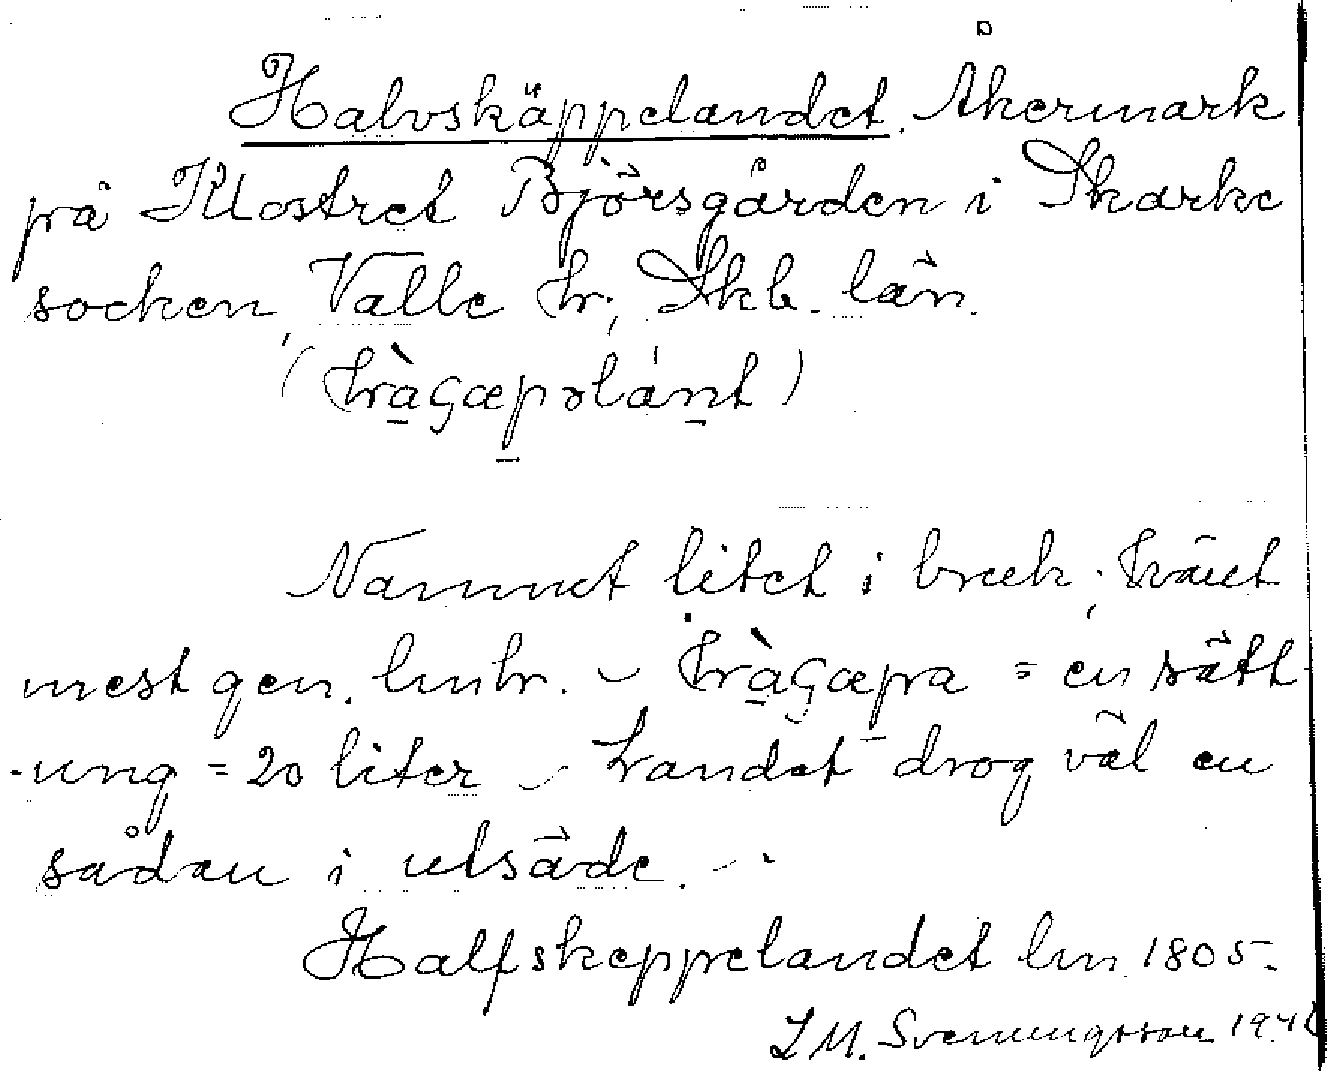 Halvskäppelandet. Åkermark
på Klostret Björsgården i Skarke
socken, Valle hr, Skb. län.
Namnet litet i bruk; känt
mest gen. lmhr. –              = en sätt-
-ung = 20 liter – Landet drog väl en
sådan i utsäde. –.
Halfskeppelandet lm 1805.
L M. Svenungsson